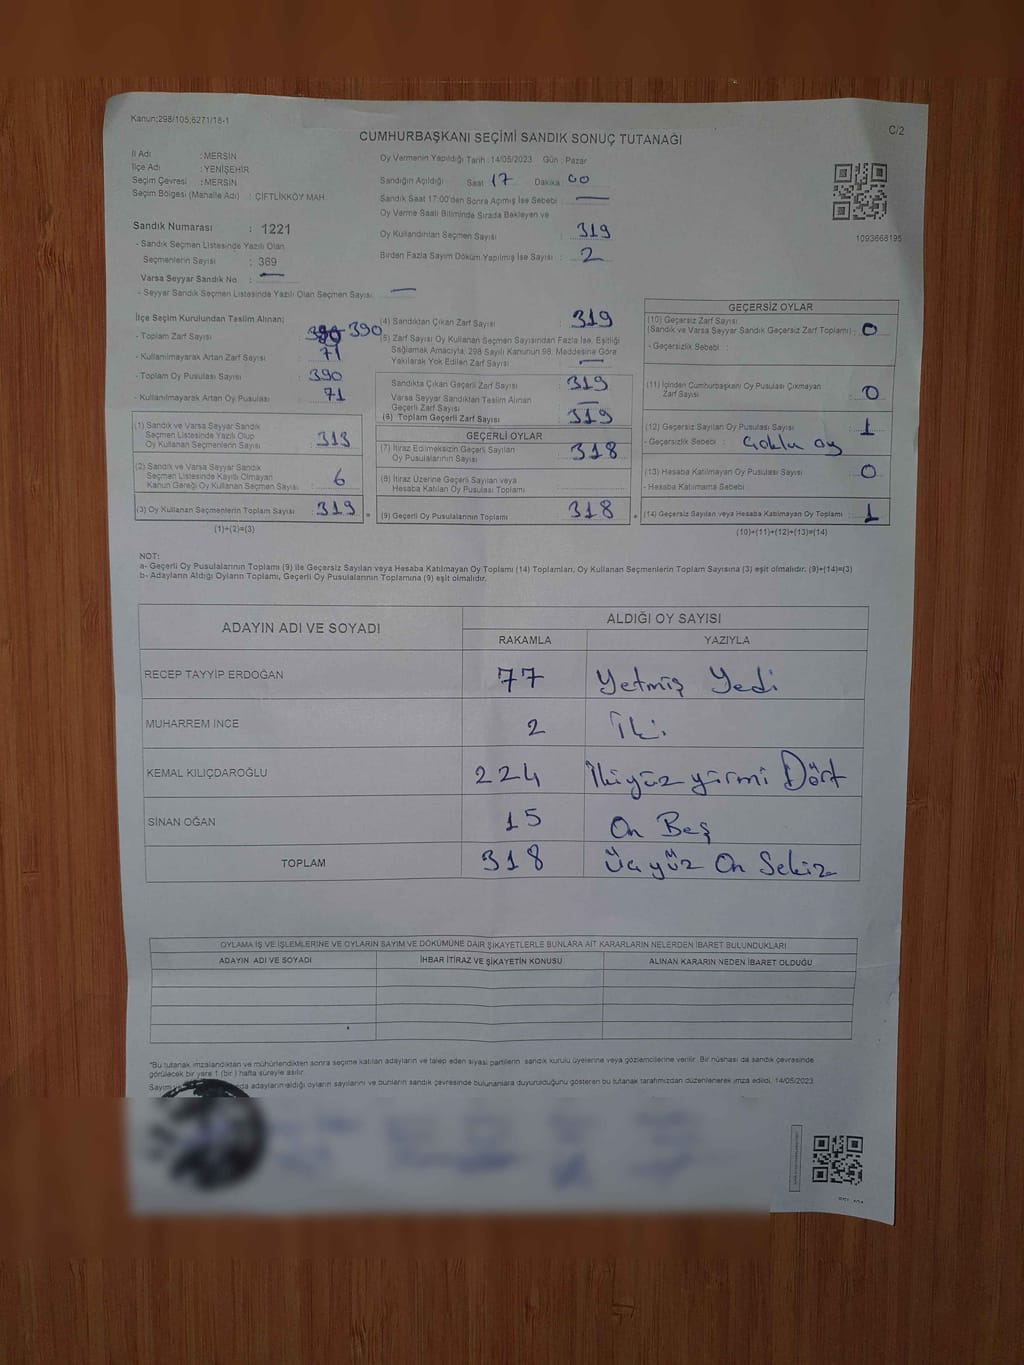 Kanun;298/105;6271/18-1
CUMHURBAŞKANI SEÇİMİ SANDIK SONUÇ TUTANAĞI
C/2
İl Adı : MERSİN
İlçe Adı : YENİŞEHİR
Seçim Çevresi : MERSİN
Seçim Bölgesi (Mahalle Adı) : ÇİFTLİKKÖY MAH.
Sandık Numarası : 1221
- Sandık Seçmen Listesinde Yazılı Olan
Seçmenlerin Sayısı : 369
Varsa Seyyar Sandık No : —
- Seyyar Sandık Seçmen Listesinde Yazılı Olan Seçmen Sayısı: —
Oy Vermenin Yapıldığı Tarih : 14/05/2023 Gün : Pazar
Sandığın Açıldığı Saat 17 Dakika 00
Sandık Saat 17:00'den Sonra Açmış İse Sebebi : —
Oy Verme Saati Bitiminde Sırada Bekleyen ve
Oy Kullandırılan Seçmen Sayısı : 319
Birden Fazla Sayım Döküm Yapılmış İse Sayısı : 2
1093668195
İlçe Seçim Kurulundan Teslim Alınan;
- Toplam Zarf Sayısı : 390
- Kullanılmayarak Artan Zarf Sayısı : 71
- Toplam Oy Pusulası Sayısı : 390
- Kullanılmayarak Artan Oy Pusulası : 71
(1) Sandık ve Varsa Seyyar Sandık
Seçmen Listesinde Yazılı Olup
Oy Kullanan Seçmenlerin Sayısı : 313
(2) Sandık ve Varsa Seyyar Sandık
Seçmen Listesinde Kayıtlı Olmayan
Kanun Gereği Oy Kullanan Seçmen Sayısı : 6
(3) Oy Kullanan Seçmenlerin Toplam Sayısı : 319 =
(1)+(2)=(3)
(4) Sandıktan Çıkan Zarf Sayısı : 319
(5) Zarf Sayısı Oy Kullanan Seçmen Sayısından Fazla İse, Eşitliği
Sağlamak Amacıyla; 298 Sayılı Kanunun 98. Maddesine Göre
Yakılarak Yok Edilen Zarf Sayısı : —
Sandıkta Çıkan Geçerli Zarf Sayısı : 319
Varsa Seyyar Sandıktan Teslim Alınan
Geçerli Zarf Sayısı : —
(6) Toplam Geçerli Zarf Sayısı : 319
GEÇERLİ OYLAR
(7) İtiraz Edilmeksizin Geçerli Sayılan
Oy Pusulalarının Sayısı : 318
(8) İtiraz Üzerine Geçerli Sayılan veya
Hesaba Katılan Oy Pusulası Toplamı :
(9) Geçerli Oy Pusulalarının Toplamı : 318 +
GEÇERSİZ OYLAR
(10) Geçersiz Zarf Sayısı
(Sandık ve Varsa Seyyar Sandık Geçersiz Zarf Toplamı) : 0
- Geçersizlik Sebebi :
(11) İçinden Cumhurbaşkanı Oy Pusulası Çıkmayan
Zarf Sayısı : 0
(12) Geçersiz Sayılan Oy Pusulası Sayısı : 1
- Geçersizlik Sebebi : Çoklu oy
(13) Hesaba Katılmayan Oy Pusulası Sayısı : 0
- Hesaba Katılmama Sebebi :
(14) Geçersiz Sayılan veya Hesaba Katılmayan Oy Toplamı : 1
(10)+(11)+(12)+(13)=(14)
NOT:
a- Geçerli Oy Pusulalarının Toplamı (9) ile Geçersiz Sayılan veya Hesaba Katılmayan Oy Toplamı (14) Toplamları, Oy Kullanan Seçmenlerin Toplam Sayısına (3) eşit olmalıdır. (9)+(14)=(3)
b- Adayların Aldığı Oyların Toplamı, Geçerli Oy Pusulalarının Toplamına (9) eşit olmalıdır.
ADAYIN ADI VE SOYADI ALDIĞI OY SAYISI
RAKAMLA YAZIYLA
RECEP TAYYİP ERDOĞAN 77 Yetmiş Yedi
MUHARREM İNCE 2 İki
KEMAL KILIÇDAROĞLU 224 İkiyüz yirmi Dört
SİNAN OĞAN 15 On Beş
TOPLAM 318 Üçyüz On Sekiz
OYLAMA İŞ VE İŞLEMLERİNE VE OYLARIN SAYIM VE DÖKÜMÜNE DAİR ŞİKAYETLERLE BUNLARA AİT KARARLARIN NELERDEN İBARET BULUNDUKLARI
ADAYIN ADI VE SOYADI İHBAR İTİRAZ VE ŞİKAYETİN KONUSU ALINAN KARARIN NEDEN İBARET OLDUĞU
*Bu tutanak imzalandıktan ve mühürlendikten sonra seçime katılan adayların ve talep eden siyasi partilerin sandık kurulu üyelerine veya gözlemcilerine verilir. Bir nüshası da sandık çevresinde
görülecek bir yere 1 (bir) hafta süreyle asılır.
Sayım adayların aldığı oyların sayılarını ve bunların sandık çevresinde bulunanlara duyurulduğunu gösteren bu tutanak tarafımızdan düzenlenerek imza edildi. 14/05/2023